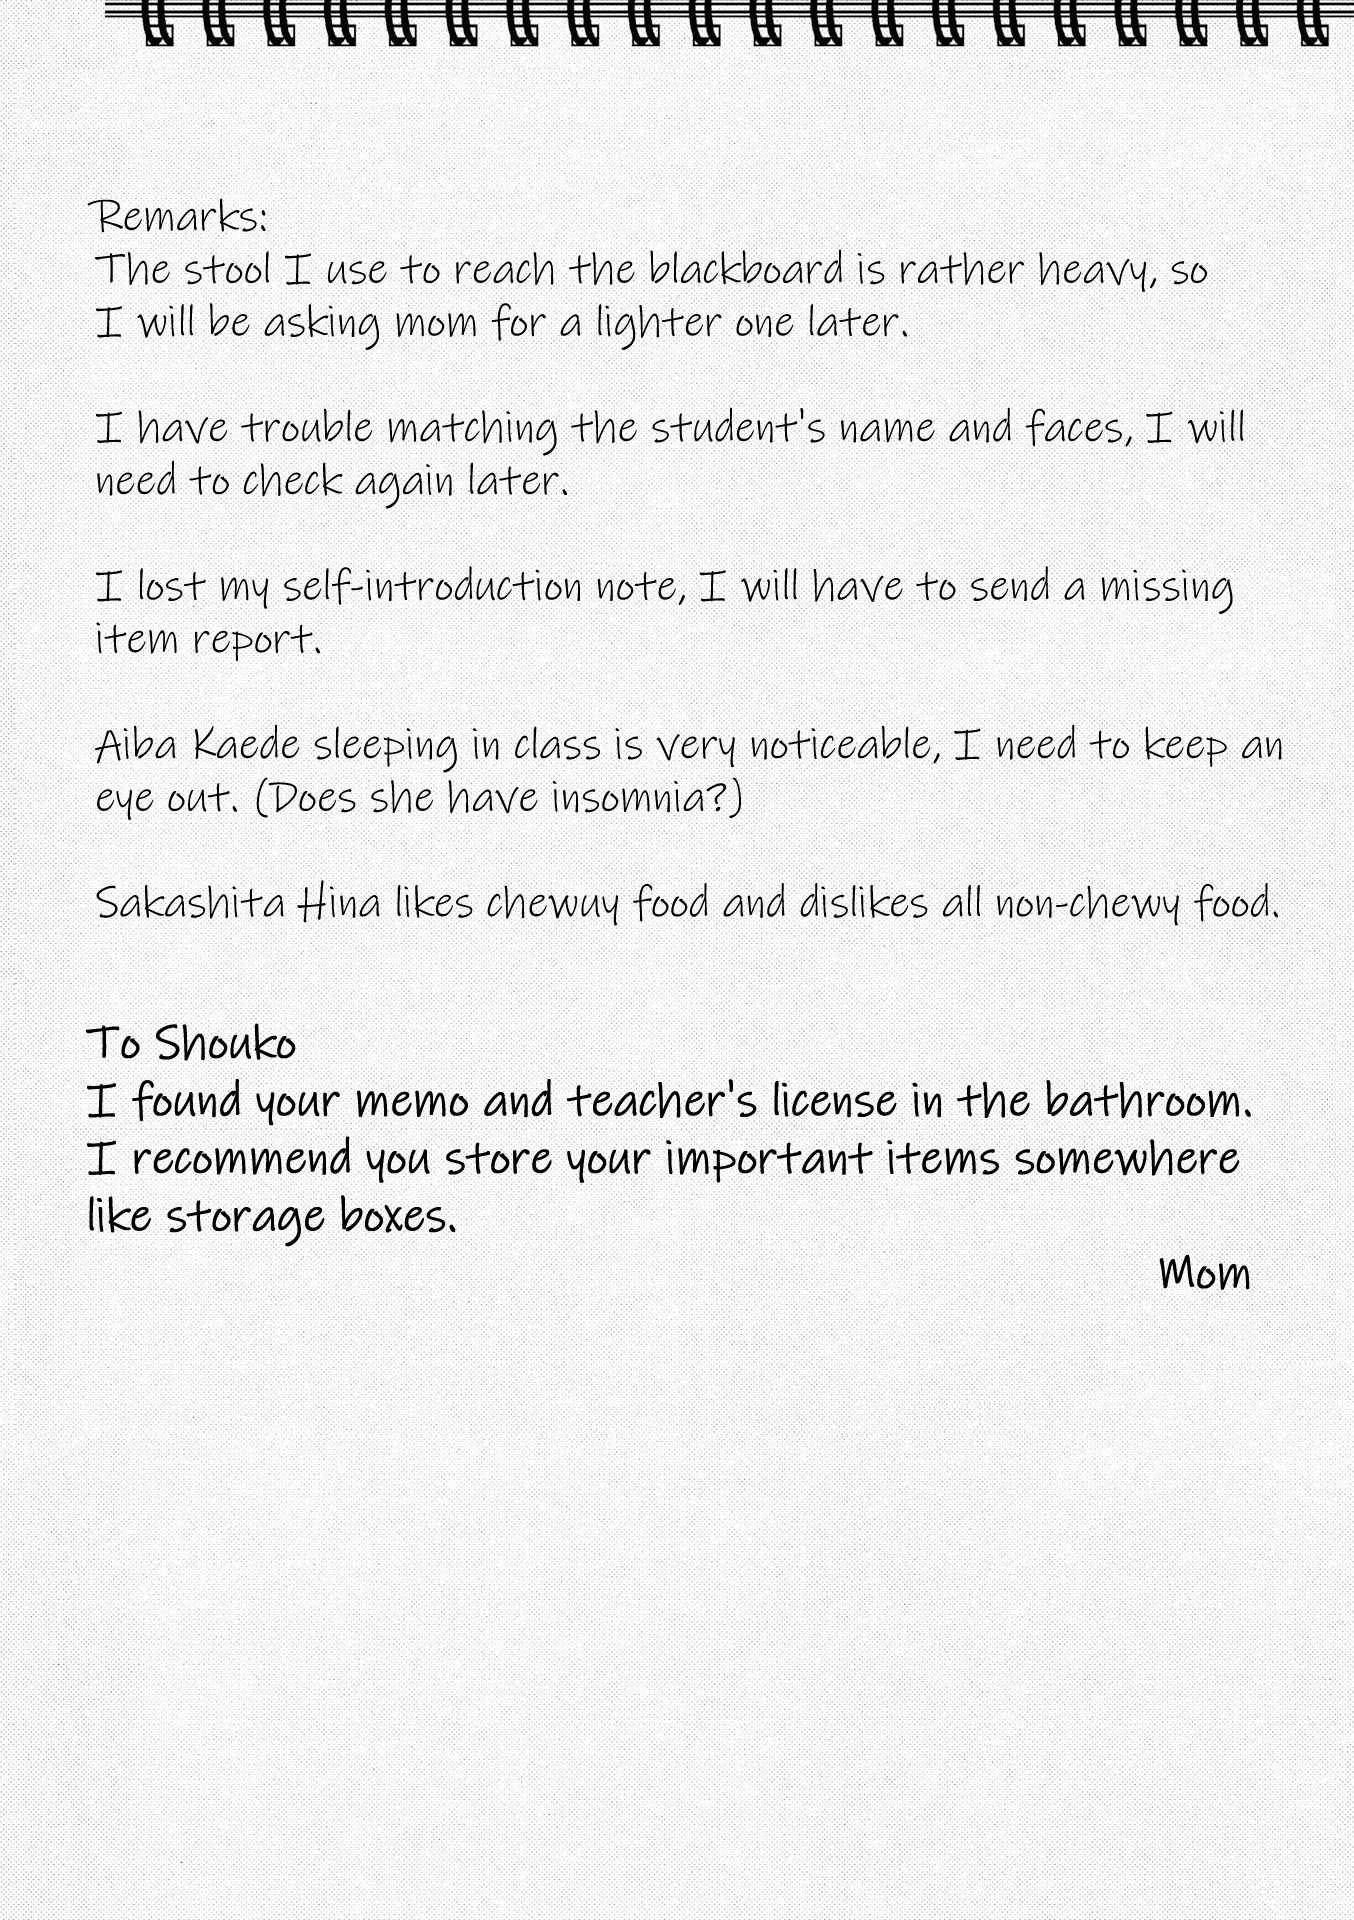 Remarks:
The stool I use to reach the blackboard is rather heavy, so
I will be asking mom for a lighter one later.
I have trouble matching the student's name and faces, I will
need to check again later.
I lost my self-introduction note, I will have to send a missing
item report.
Aiba Kaede sleeping in class is very noticeable, I need to keep an
eye out. (Does she have insomnia?)
Sakashita Hina likes chewuy food and dislikes all non-chewy food.
To Shouko
I found your memo and teacher's license in the bathroom.
I recommend you store your important items somewhere
like storage boxes.
Mom